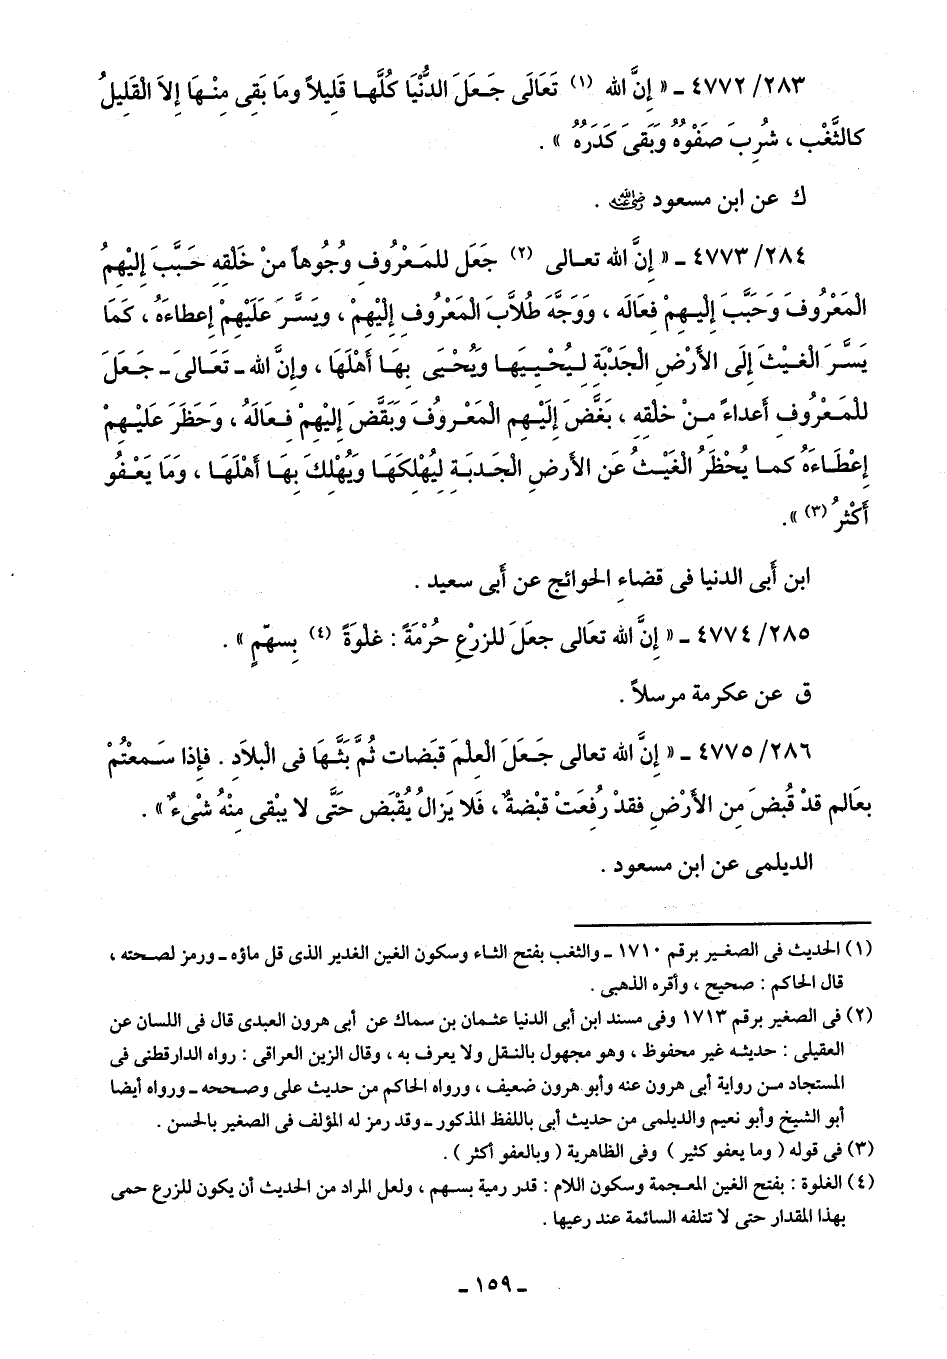 ٤٧٧٢/٢٨٣ ـ « إِنَّ الله (١) تَعَالَى جَعَلَ الدُّنْيَا كُلَّهَا قَلِيلاً وما بَقِى مِنْهَا إِلاَ الْقَلِيلُ
كالثَّغْب ، شُرِبَ صَفْوُهُ وَبَقىَ كَدَرُهُ » .
ك عن ابن مسعود رضي الله عنه .
٤٧٧٣/٢٨٤ ـ « إنَّ الله تعالى (٢) جَعَل للمَعْرُوفِ وُجُوهاً منْ خَلْقِهِ حَبَّبَ إِليهِمُ
الْمَعْرُوفَ وَحَبَّبَ إِلَيهِمْ فعَالَه ، ووَجَّهَ طُلاَّبَ الْمَعْرُوفِ إِلَيْهِمْ ، ويَسَّرَ عَلَيْهِمْ إِعطاءَهُ ، كَمَا
يَسَّرَ الْغيْثَ إِلَى الأَرْضِ الْجَدْبَةِ لِيُحْيِيَهَا وَيُحْيَى بِهَا أَهْلَهَا ، وإِنَّ الله ـ تَعَالَىَ ـ جَعَلَ
للْمَعْرُوفِ أعداءً مِنْ خلْقِهِ ، بَغَّضَ إِلَيْهِمِ الْمَعْروفَ وَبَغَّضَ إِليْهِمْ فِعَالَهُ ، وحَظَرَ عَليْهِمْ
إِعْطَاءَهُ كما يُحْظَرُ الْغَيْثُ عَنِ الأَرضِ الْجَدبَةِ لِيُهْلِكَهَا وَيُهْلِكَ بِهَا أَهْلَهَا ، وَمَا يَعْفُو
أَكْثرُ (٣) ».
ابن أَبى الدنيا فى قضاءِ الحوائج عن أَبى سعيد .
٤٧٧٤/٢٨٥ ـ « إِنَّ الله تعَالى جعَلَ للزرْعِ حُرْمَةً : غلْوَةً (٤) بِسهْمٍ » .
ق عن عكرمة مرسلاً .
٤٧٧٥/٢٨٦ ـ « إِنَّ الله تعالى جَعَلَ الْعلْمَ قبَضات ثُمَّ بَثَّهَا فى الْبلاَدِ . فإِذا سَمعْتُمْ
بعَالم قدْ قُبضَ مِن الأَرْضِ فقدْ رُفعَتْ قبْضةٌ ، فَلا يَزالُ يُقْبَض حَتَّى لا يبْقى مِنْهُ شْىءٌ » .
الديلمى عن ابن مسعود .
(١) الحديث فى الصغير برقم ١٧١٠ ـ والثغب بفتح الثاء وسكون الغين الغدير الذى قل ماؤه ـ ورمز لصحته ،
قال الحاكم : صحيح ، وأقره الذهبى .
(٢) فى الصغير برقم ١٧١٣ وفى مسند ابن أبى الدنيا عثمان بن سماك عن أبى هرون العبدى قال فى اللسان عن
العقيلى : حديثه غير محفوظ ، وهو مجهول بالنقل ولا يعرف به ، وقال الزين العراقى : رواه الدارقطنى فى
المستجاد من رواية أبى هرون عنه وأبو هرون ضعيف ، ورواه الحاكم من حديث على وصححه ـ ورواه أيضا
أبو الشيخ وأبو نعيم والديلمى من حديث أبى باللفظ المذكور ـ وقد رمز له المؤلف فى الصغير بالحسن .
(٣) فى قوله ( وما يعفو كثير ) وفى الظاهرية ( وبالعفو أكثر ) .
(٤) الغلوة : بفتح الغين المعجمة وسكون اللام : قدر رمية بسهم ، ولعل المراد من الحديث أن يكون للزرع حمى
بهذا المقدار حتى لا تتلفه السائمة عند رعيها .
ـ ١٥٩ ـ